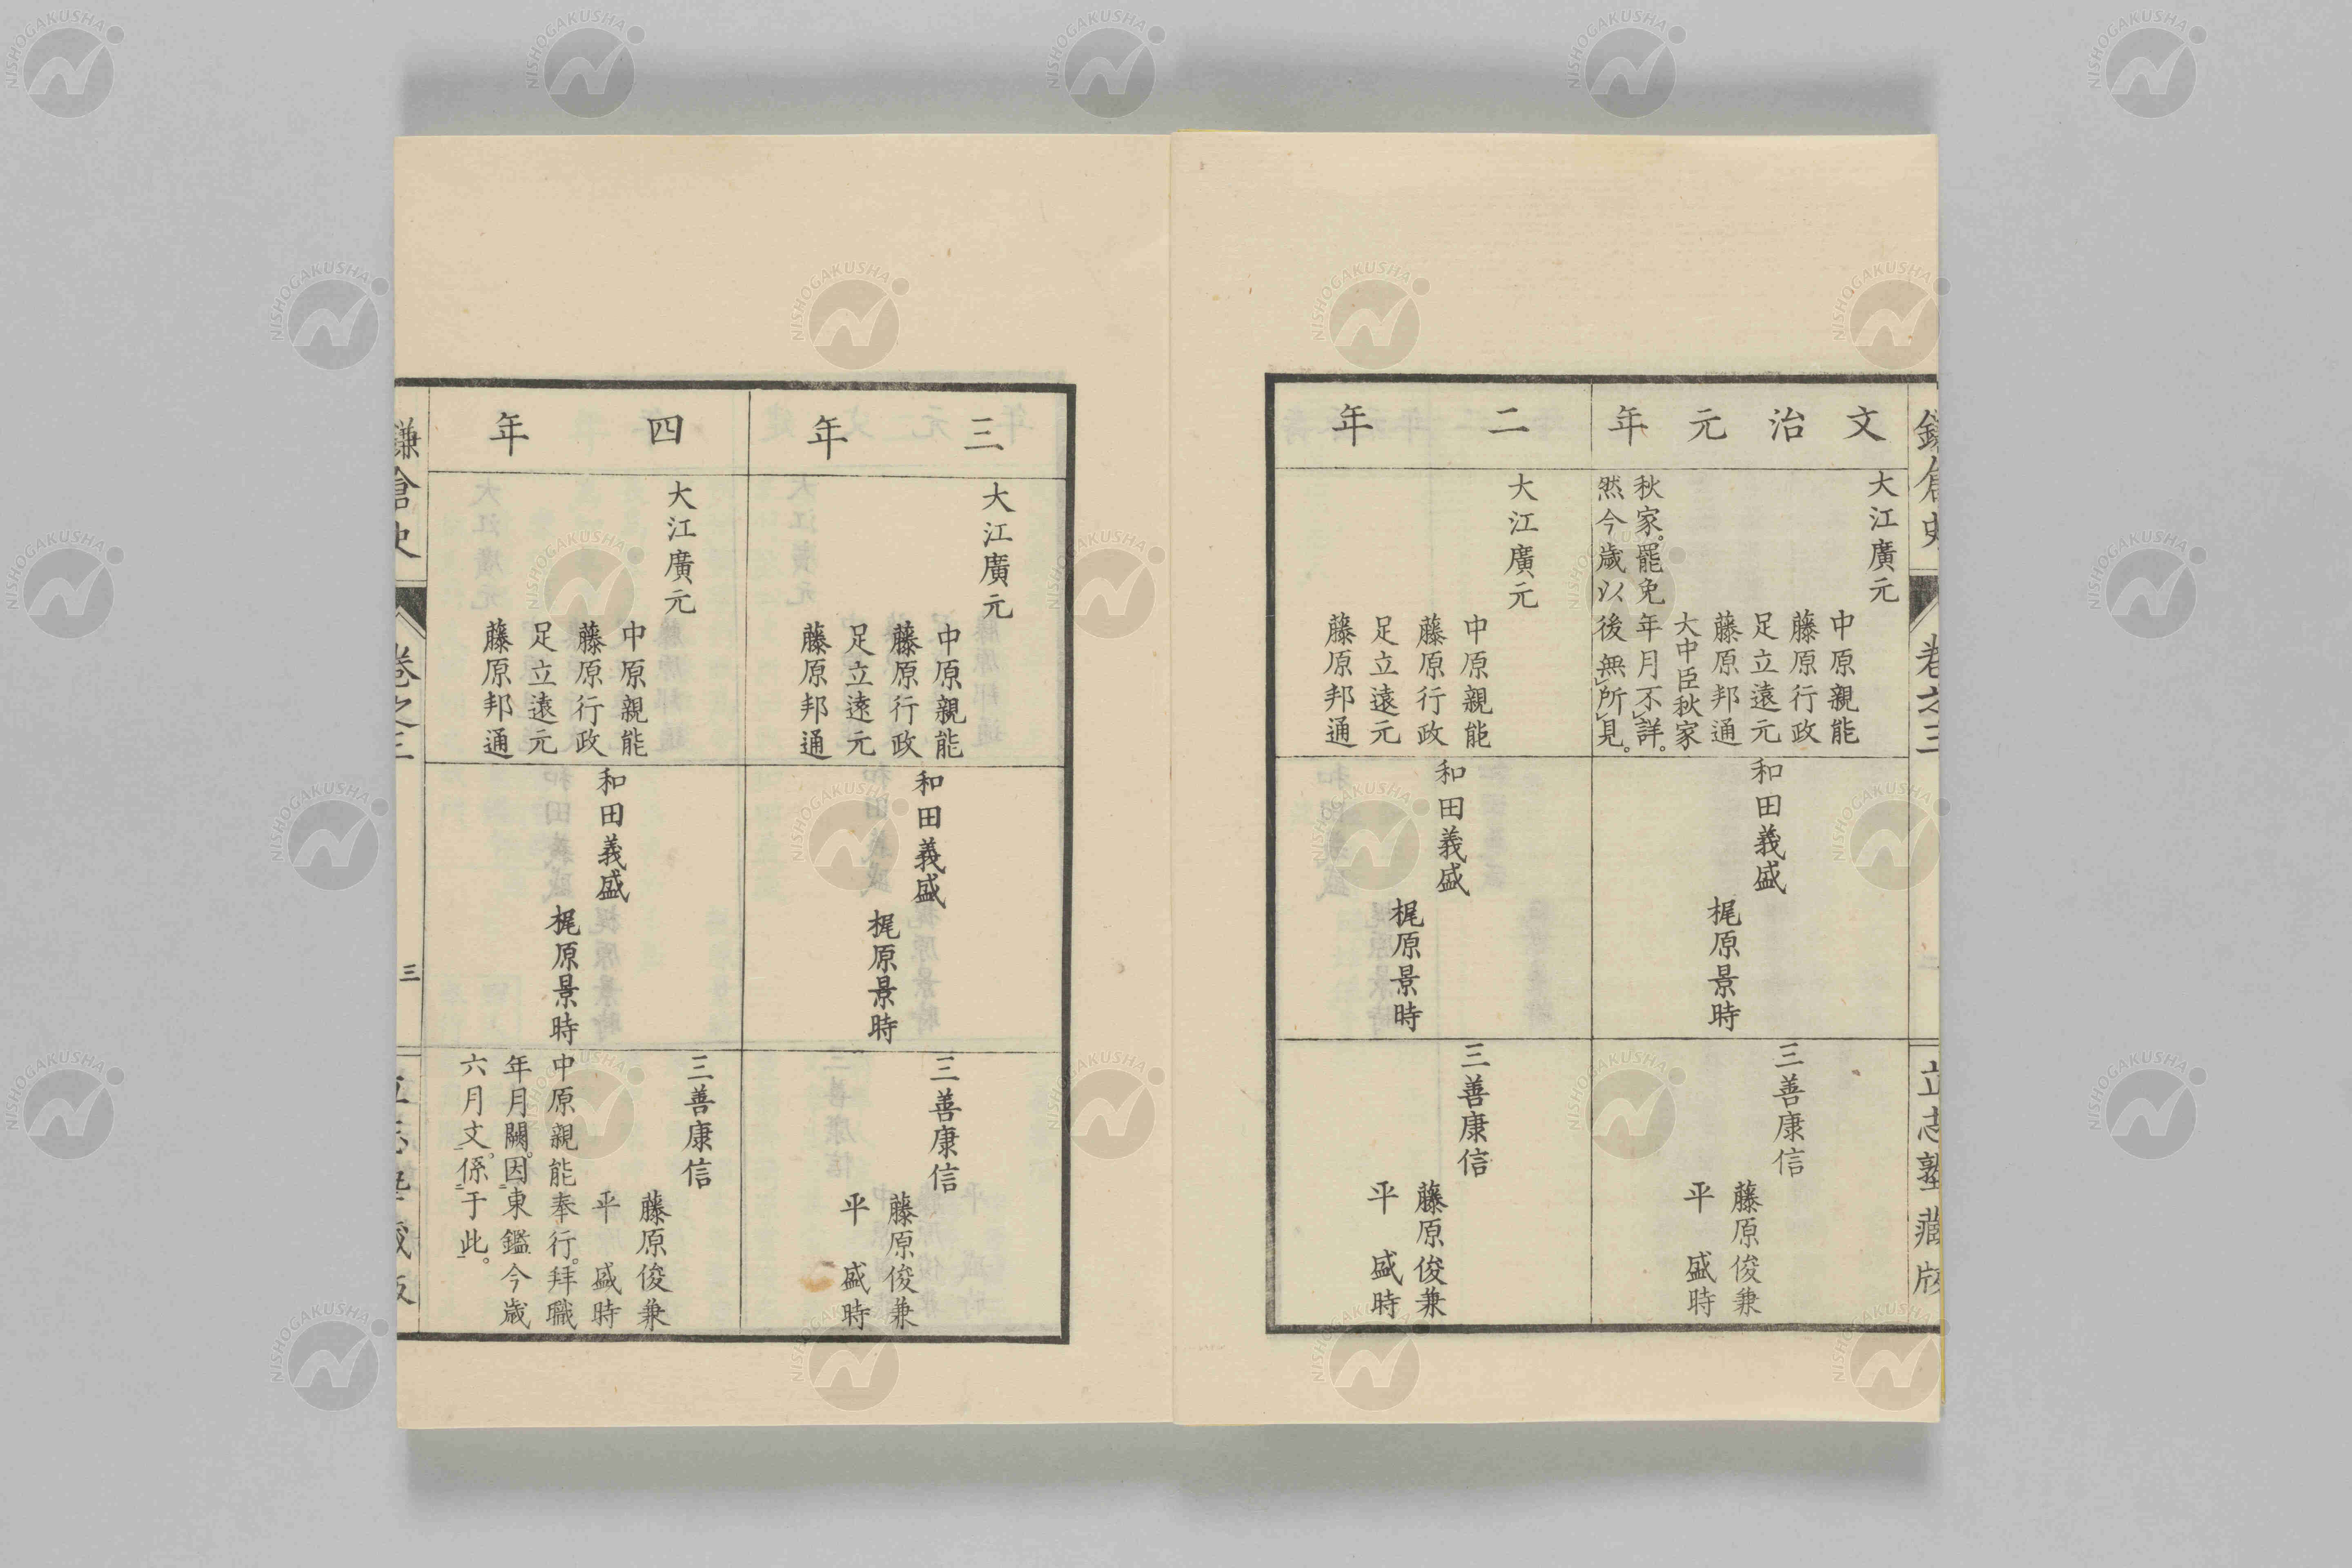 鎌倉史
卷之三
立志塾藏版
文治元年
大江廣元
中原親能
藤原行政
足立遠元
藤原邦通
大中臣秋家
秋家罷免年月不詳。
然今歲以後無所見。
和田義盛
梶原景時
三善康信
藤原俊兼
平盛時
二年
大江廣元
中原親能
藤原行政
足立遠元
藤原邦通
和田義盛
梶原景時
三善康信
藤原俊兼
平盛時
三年
大江廣元
中原親能
藤原行政
足立遠元
藤原邦通
和田義盛
梶原景時
三善康信
藤原俊兼
平盛時
四年
大江廣元
中原親能
藤原行政
足立遠元
藤原邦通
和田義盛
梶原景時
三善康信
藤原俊兼
平盛時
中原親能奉行。拜職
年月闕。因東鑑今歲
六月文。係于此。
鎌倉史
卷之三
三
立志塾藏版
NISHOGAKUSHA